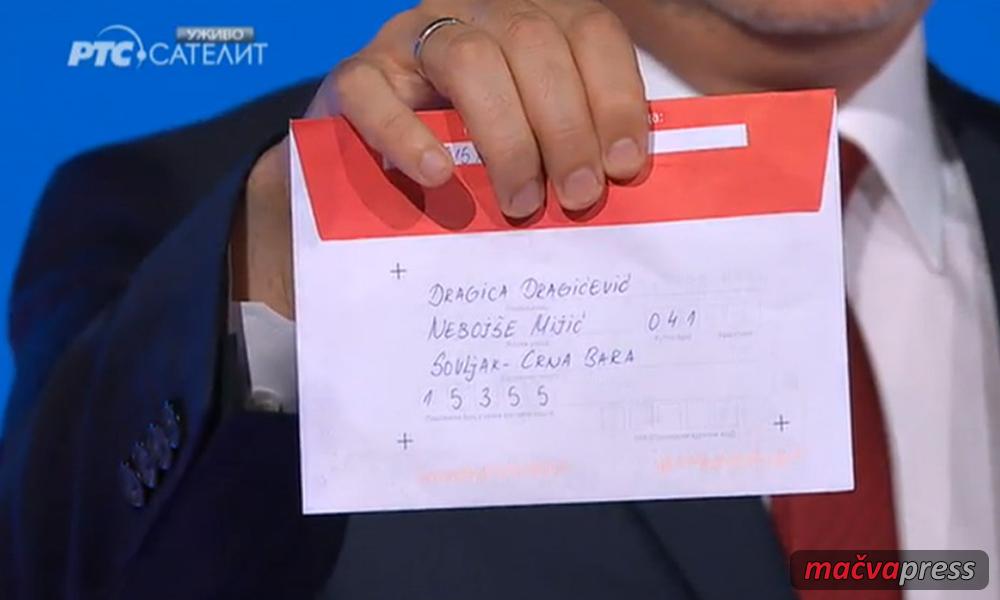 УЖИВО
РТС САТЕЛИТ
то:
15
DRAGICA DRAGIĆEVIĆ
NEBOJŠE MIJIĆ 041
SOVLJAK- CRNA BARA
15355
mačvapress